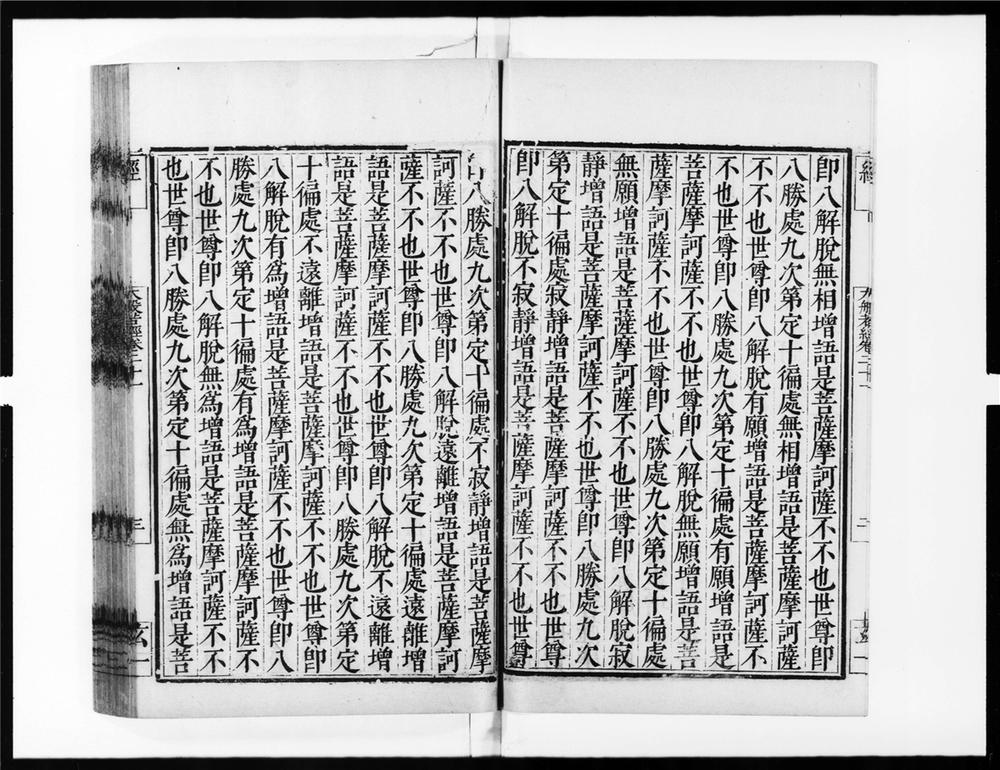 卽八解脫無相增語是菩薩摩訶薩不不也世尊卽
八勝處九次第定十徧處無相增語是菩薩摩訶薩
不不也世尊卽八解脫有願增語是菩薩摩訶薩不
不也世尊卽八勝處九次第定十徧處有願增語是
菩薩摩訶薩不不也世尊卽八解脫無願增語是菩
薩摩訶薩不不也世尊卽八勝處九次第定十徧處
無願增語是菩薩摩訶薩不不也世尊卽八解脫寂
靜增語是菩薩摩訶薩不不也世尊卽八勝處九次
第定十徧處寂靜增語是菩薩摩訶薩不不也世尊
卽八解脫不寂靜增語是菩薩摩訶薩不不也世尊
八勝處九次第定十徧處不寂靜增語是菩薩摩
訶薩不不也世尊卽八解脫遠離增語是菩薩摩訶
薩不不也世尊卽八勝處九次第定十徧處遠離增
語是菩薩摩訶薩不不也世尊卽八解脫不遠離增
語是菩薩摩訶薩不不也世尊卽八勝處九次第定
十徧處不遠離增語是菩薩摩訶薩不不也世尊卽
八解脫有爲增語是菩薩摩訶薩不不也世尊卽八
勝處九次第定十徧處有爲增語是菩薩摩訶薩不
不也世尊卽八解脫無爲增語是菩薩摩訶薩不不
也世尊卽八勝處九次第定十徧處無爲增語是菩
經
大般若經卷三十一
三